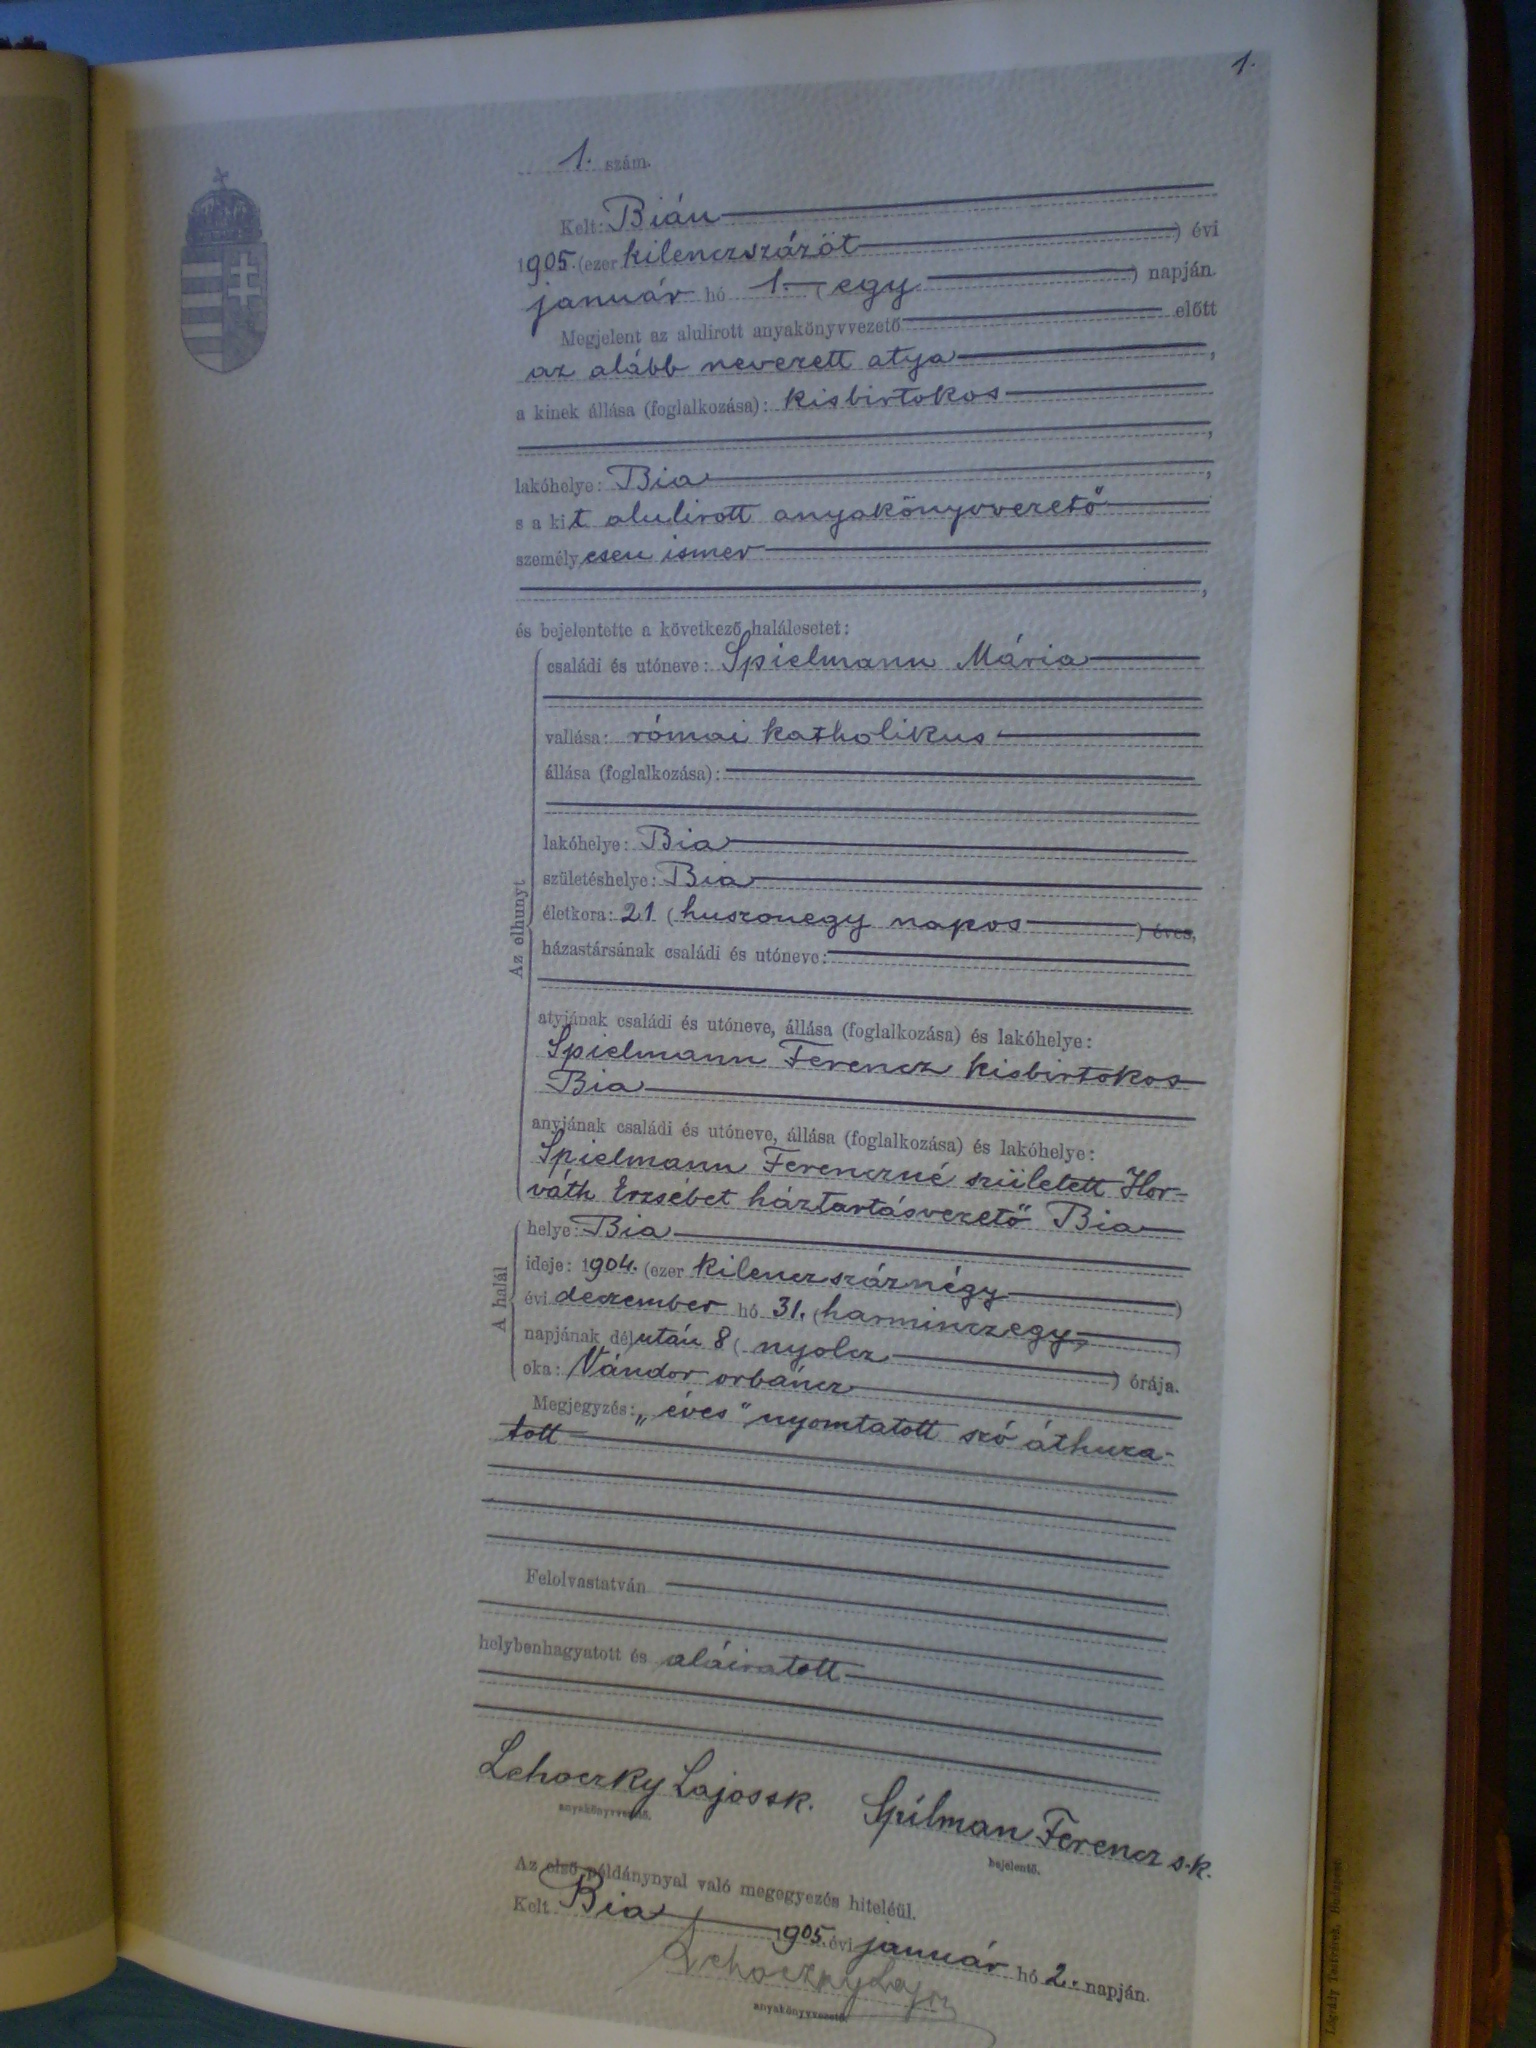 1.
1. szám.
Kelt: Bián
1905. (ezer kilenczszázöt ) évi
január hó 1. (egy ) napján.
Megjelent az alulirott anyakönyvvezető előtt
az alább nevezett atya ,
a kinek állása (foglalkozása): kisbirtokos
,
lakóhelye: Bia ,
s a kit alulirott anyakönyvvezető
személyesen ismer
,
és bejelentette a következő halálesetet:
Az elhunyt
családi és utóneve: Spielmann Mária
vallása: római katholikus
állása (foglalkozása):
lakóhelye: Bia
születéshelye: Bia
életkora: 21 (huszonegy napos ) éves,
házastársának családi és utóneve:
atyjának családi és utóneve, állása (foglalkozása) és lakóhelye:
Spielmann Ferencz kisbirtokos
Bia
anyjának családi és utóneve, állása (foglalkozása) és lakóhelye:
Spielmann Ferenczné született Hor-
váth Erzsébet háztartásvezető Bia
A halál
helye: Bia
ideje: 1904. (ezer kilenczszáznégy )
évi deczember hó 31. (harminczegy )
napjának délután 8 (nyolcz ) órája.
oka: Vándor orbáncz
Megjegyzés: „éves" nyomtatott szó áthuza-
tott
Felolvastatván
helybenhagyatott és aláiratott
Lehoczky Lajos sk. Spilman Ferencz s.k.
anyakönyvvezető. bejelentő.
Az első példánynyal való megegyezés hiteléül.
Kelt Bia 1905. évi január hó 2. napján.
Lehoczky Lajos
anyakönyvvezető.
Légrády Testvérek, Budapest.